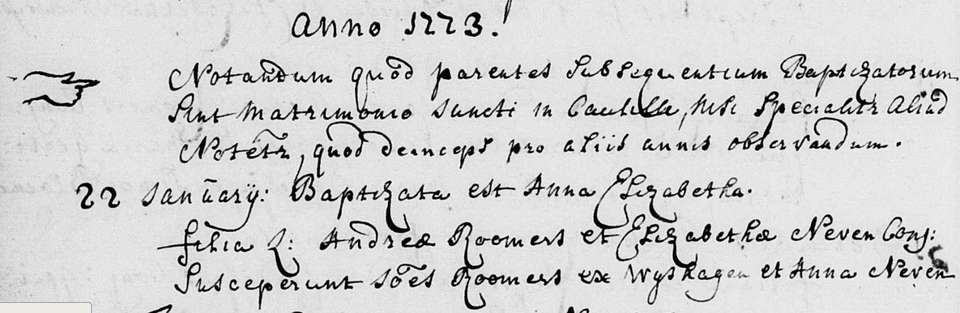 Anno 1773!
Notandum quod parentes subsequentium Baptizatorum
sint matrimonio juncti in Caulille, nisi specialitr aliud
Notetr, quod deinceps pro aliis annis observandum.
22 januarij: Baptizata est Anna Elizabetha.
filia L: Andreæ Roomers et Elizabethæ Neven Conj:
Susceperunt Joes Roomers ex Wyshagen et Anna Neven